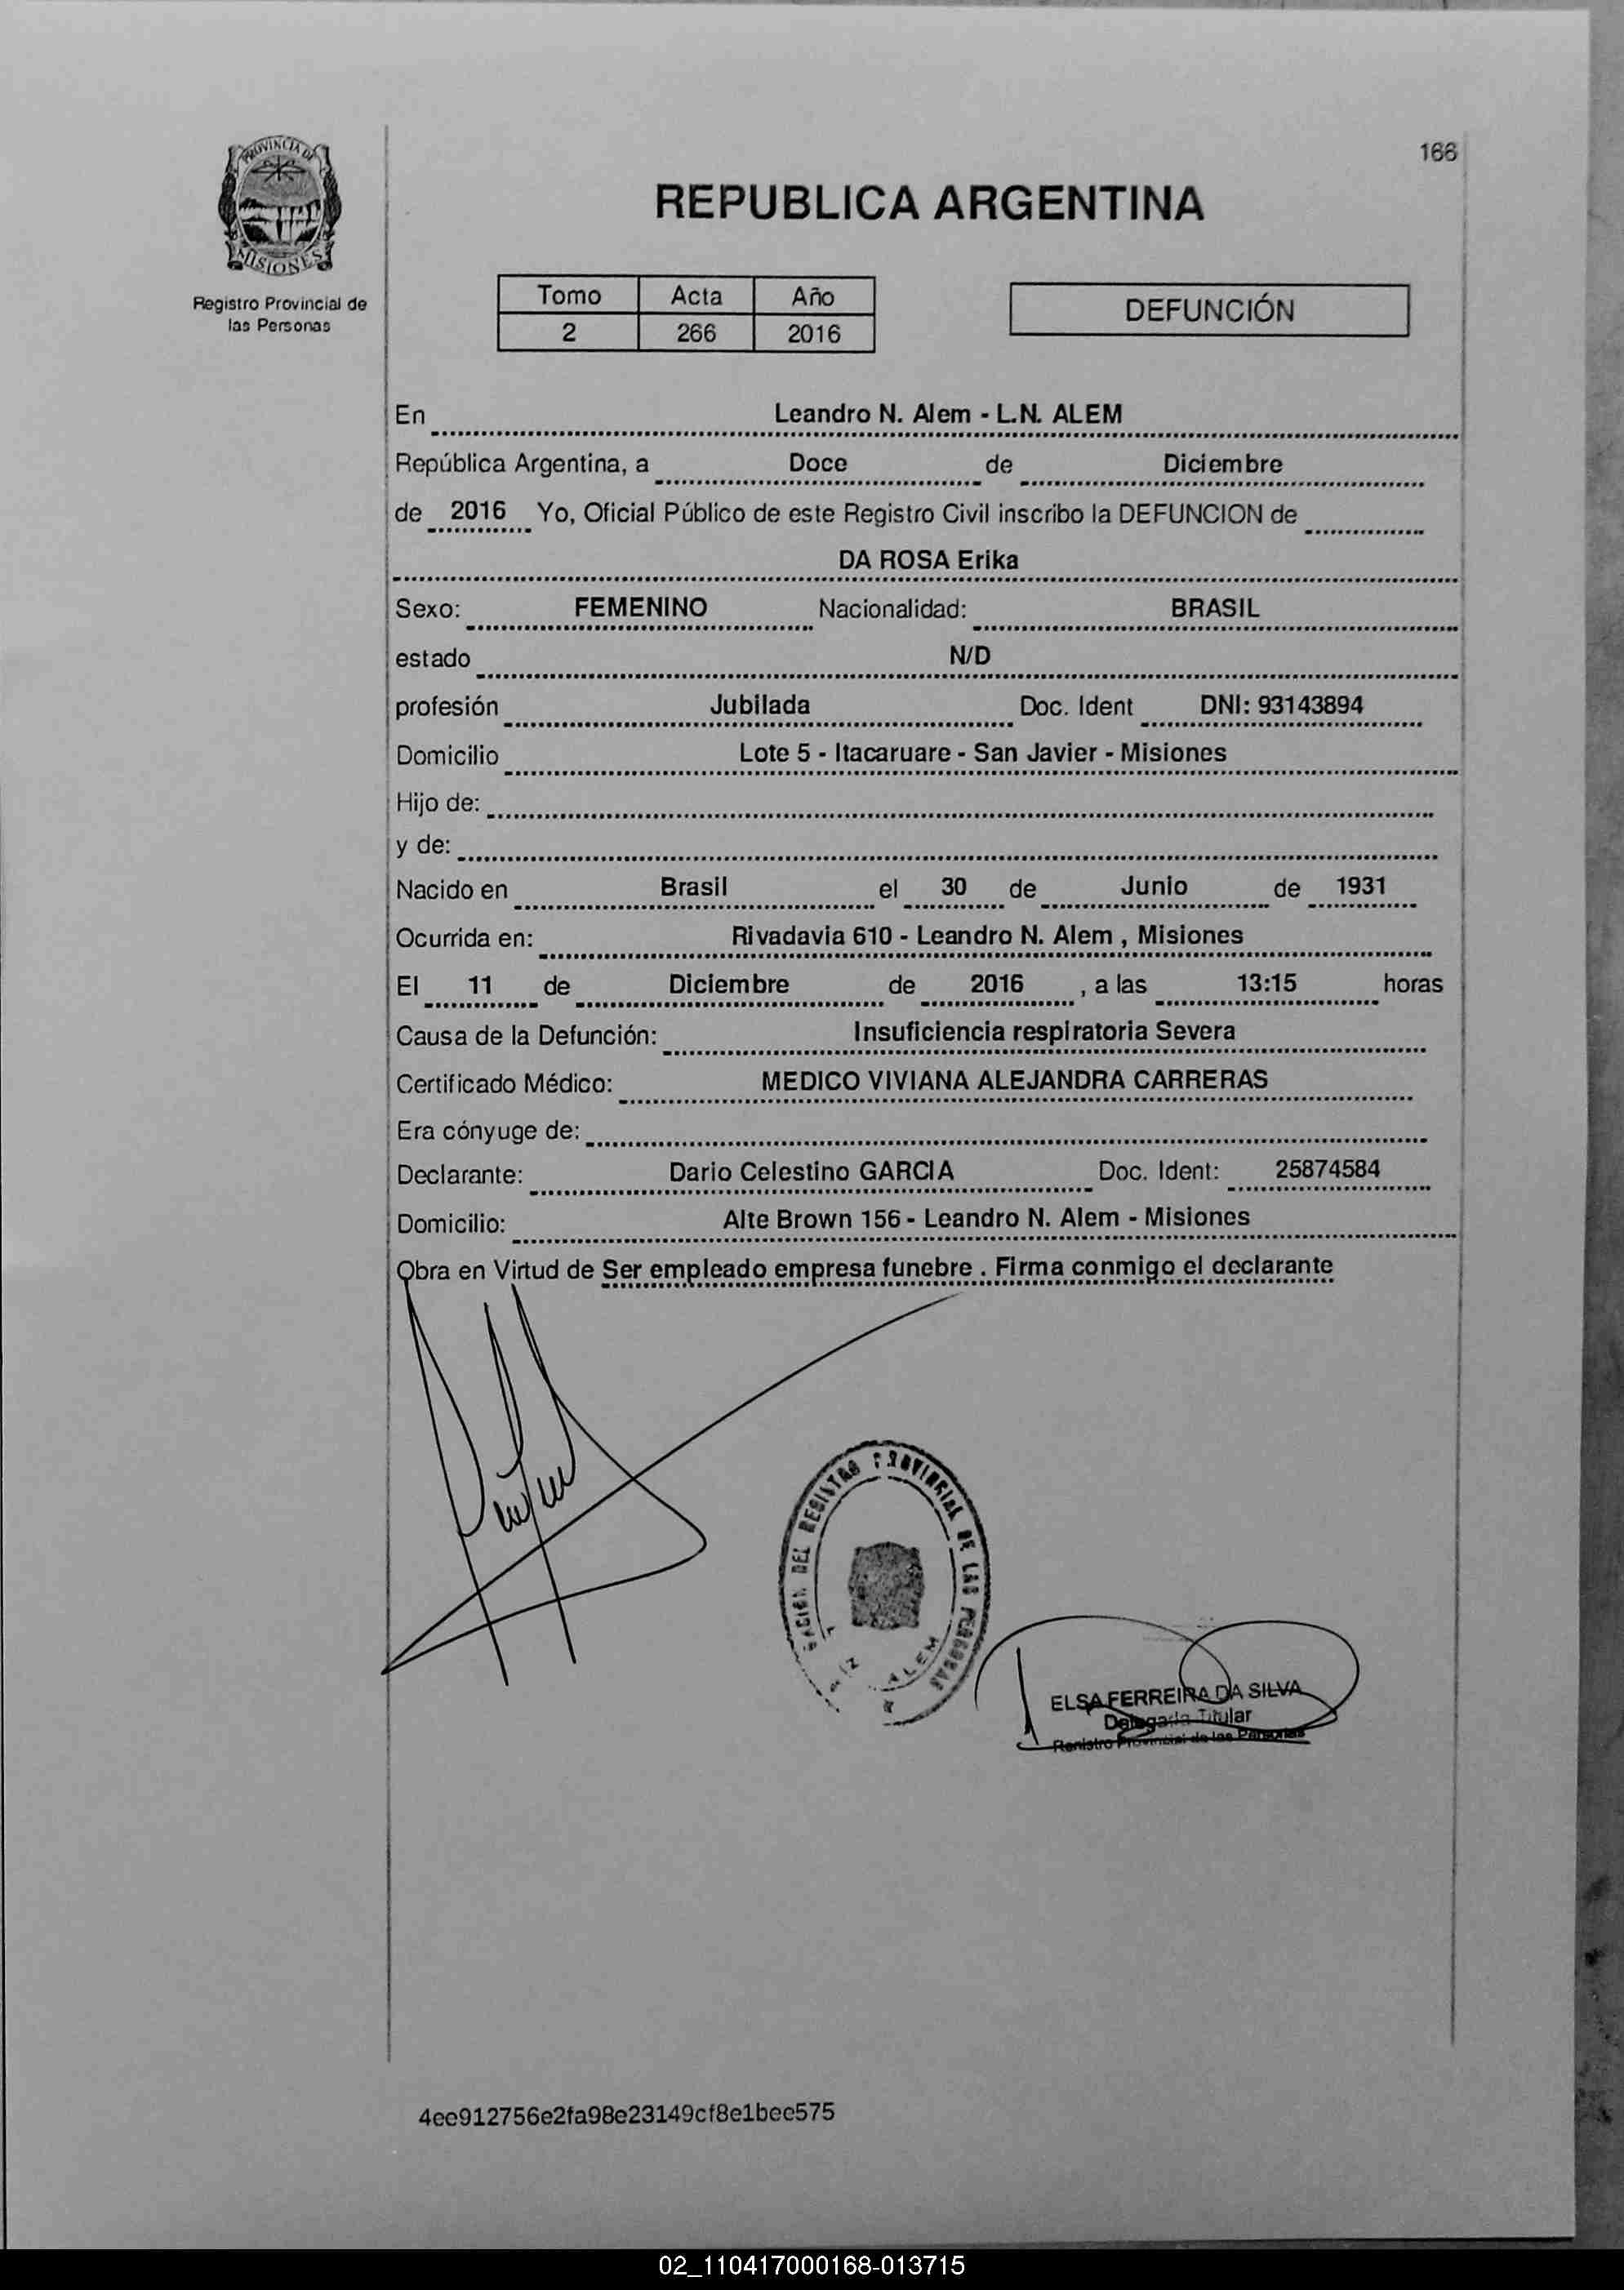 166
PROVINCIA DE
MISIONES
REPUBLICA ARGENTINA
Registro Provincial de
las Personas
Tomo Acta Año
2 266 2016
DEFUNCIÓN
En Leandro N. Alem - L.N. ALEM
República Argentina, a Doce de Diciembre
de 2016 Yo, Oficial Público de este Registro Civil inscribo la DEFUNCION de
DA ROSA Erika
Sexo: FEMENINO Nacionalidad: BRASIL
estado N/D
profesión Jubilada Doc. Ident DNI: 93143894
Domicilio Lote 5 - Itacaruare - San Javier - Misiones
Hijo de:
y de:
Nacido en Brasil el 30 de Junio de 1931
Ocurrida en: Rivadavia 610 - Leandro N. Alem , Misiones
El 11 de Diciembre de 2016 , a las 13:15 horas
Causa de la Defunción: Insuficiencia respiratoria Severa
Certificado Médico: MEDICO VIVIANA ALEJANDRA CARRERAS
Era cónyuge de:
Declarante: Dario Celestino GARCIA Doc. Ident: 25874584
Domicilio: Alte Brown 156 - Leandro N. Alem - Misiones
Obra en Virtud de Ser empleado empresa funebre . Firma conmigo el declarante
DEL REGISTRO PROVINCIAL DE LAS PERSONAS
ALEM
ELSA FERREIRA DA SILVA
Delegada Titular
Registro Provincial de las Personas
4ee912756e2fa98e23149cf8e1bee575
02_110417000168-013715